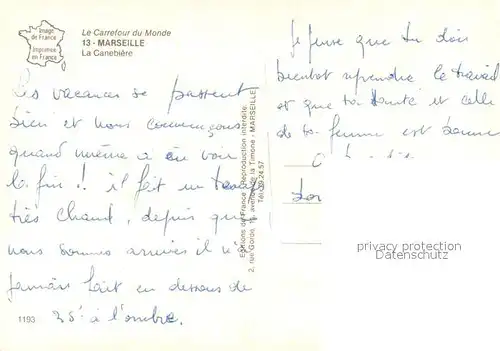 Image
de France
Imprimée
en France
Le Carrefour du Monde
13 - MARSEILLE
La Canebière
Les vacances se passent
bien et nous commençons
quand même à en voir
la fin ! il fait un temps
très chaud, depuis que
nous sommes arrivés il n'a
jamais fait en dessous de
35° à l'ombre.
1193
Editions de France - Reproduction interdite
2, rue Gardie, avenue de la Timone - MARSEILLE
Je pense que tu dois
bientôt reprendre le travail
et que ta santé et celle
de ta femme est bonne
privacy protection
Datenschutz